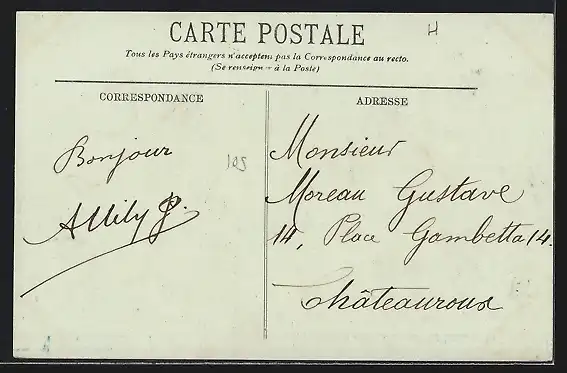 CARTE POSTALE
H
Tous les Pays étrangers n'acceptent pas la Correspondance au recto.
(Se renseigner à la Poste)
CORRESPONDANCE
ADRESSE
Bonjour
105
Monsieur
Moreau Gustave
14, Place Gambetta 14.
Châteauroux